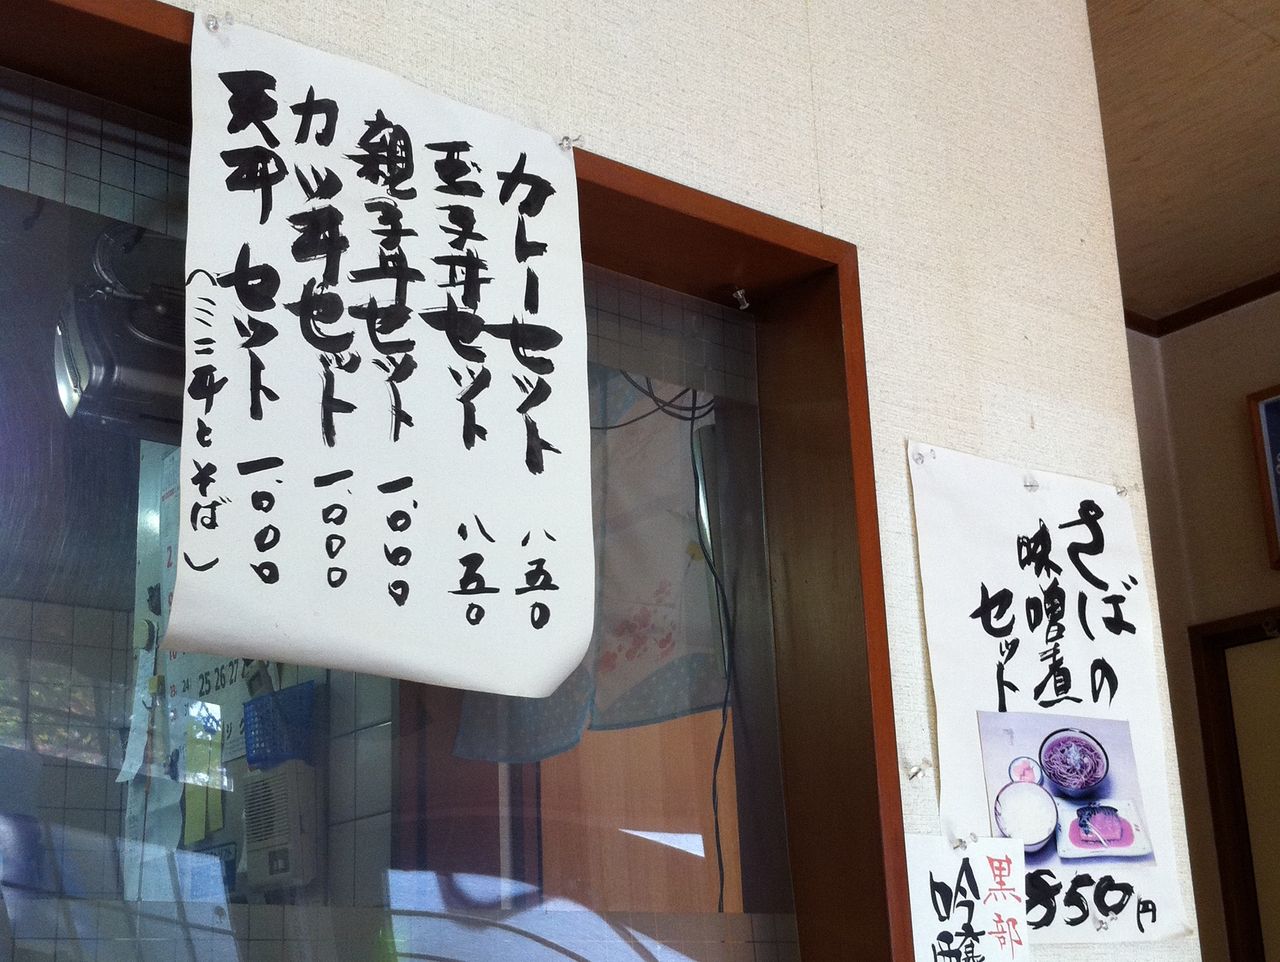 カレーセット 八五〇
玉子丼セット 八五〇
親子丼セット 一、〇〇〇
カツ丼セット 一、〇〇〇
天丼セット 一、〇〇〇
（ミニ丼とそば）
さばの
味噌煮
セット
850円
黒部
吟醸
25 26 27